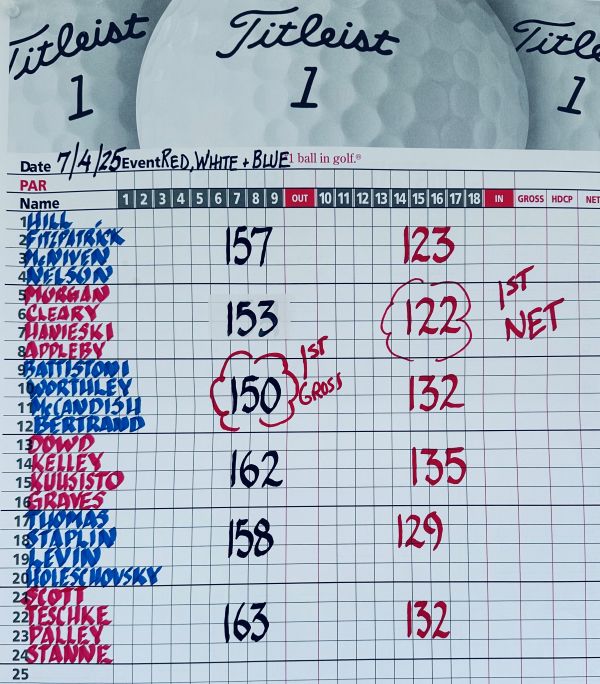 Titleist Titleist Titleist
1 1 1
Date 7/4/25 Event RED, WHITE + BLUE 1 ball in golf.®
PAR
Name 1 2 3 4 5 6 7 8 9 OUT 10 11 12 13 14 15 16 17 18 IN GROSS HDCP NET
1 HILL
2 FITZPATRICK 157 123
3 McNIVEN
4 NELSON
5 MORGAN
6 CLEARY 153 122 1ST NET
7 HANIESKI
8 APPLEBY
9 BATTISTONI
10 WORTHLEY 150 1ST GROSS 132
11 McCANDISH
12 BERTRAND
13 DOWD
14 KELLEY 162 135
15 KUUSISTO
16 GRAVES
17 THOMAS
18 STAPLIN 158 129
19 LEVIN
20 HOLESCHOVSKY
21 SCOTT
22 TESCHKE 163 132
23 PALLEY
24 STANNE
25